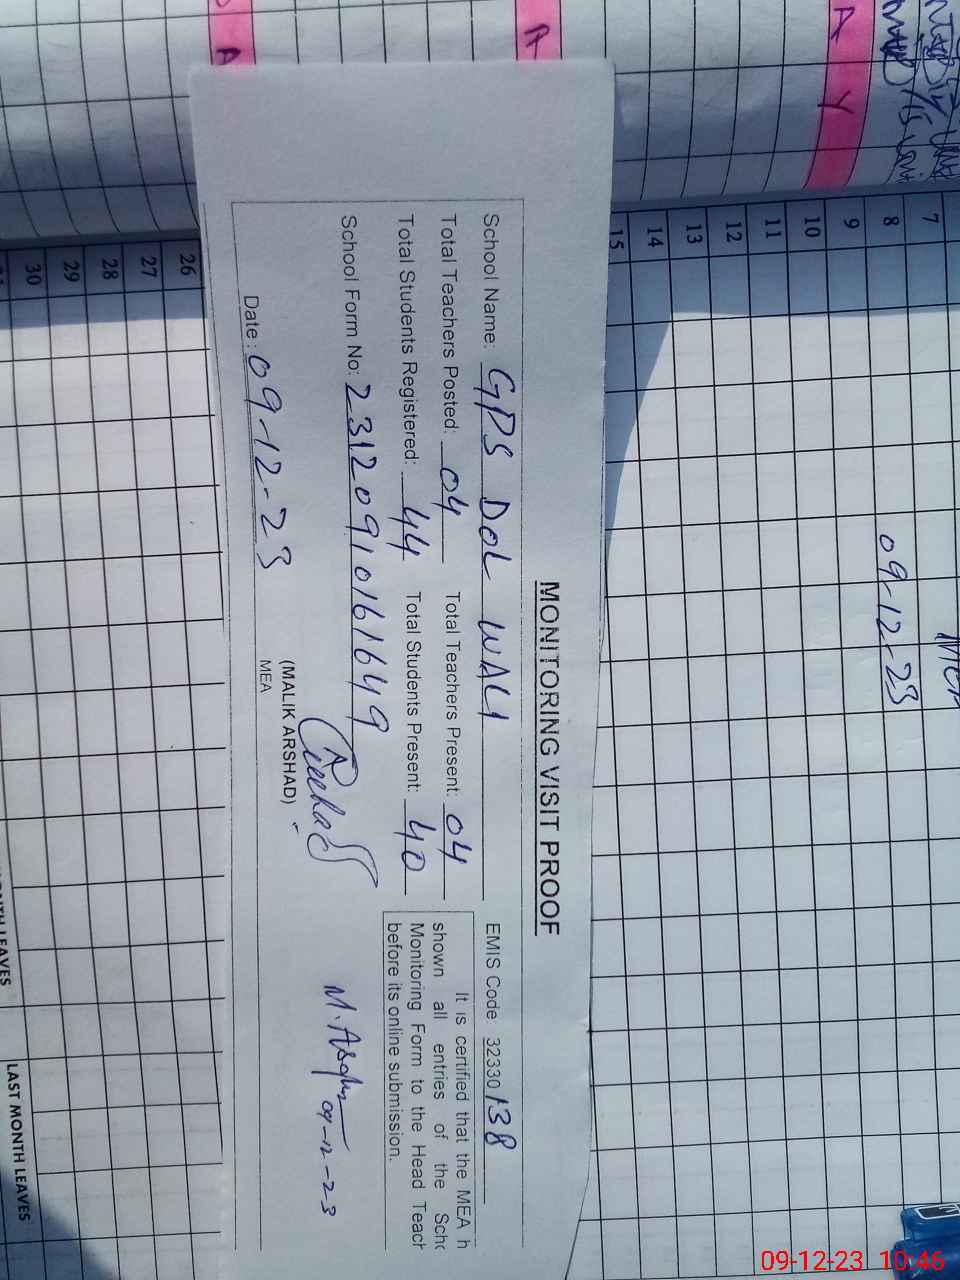 MONITORING VISIT PROOF
School Name: GPS DOL WALI
EMIS Code 32330138
Total Teachers Posted: 04 Total Teachers Present: 04
Total Students Registered: 44 Total Students Present: 40
School Form No: 23120910161649
It is certified that the MEA h
shown all entries of the Scho
Monitoring Form to the Head Teach
before its online submission.
(MALIK ARSHAD)
MEA
Date: 09-12-23
09-12-23
09-12-23
A
A
A
Y
7
8
9
10
11
12
13
14
15
26
27
28
29
30
LAST MONTH LEAVES
09-12-23 10:46